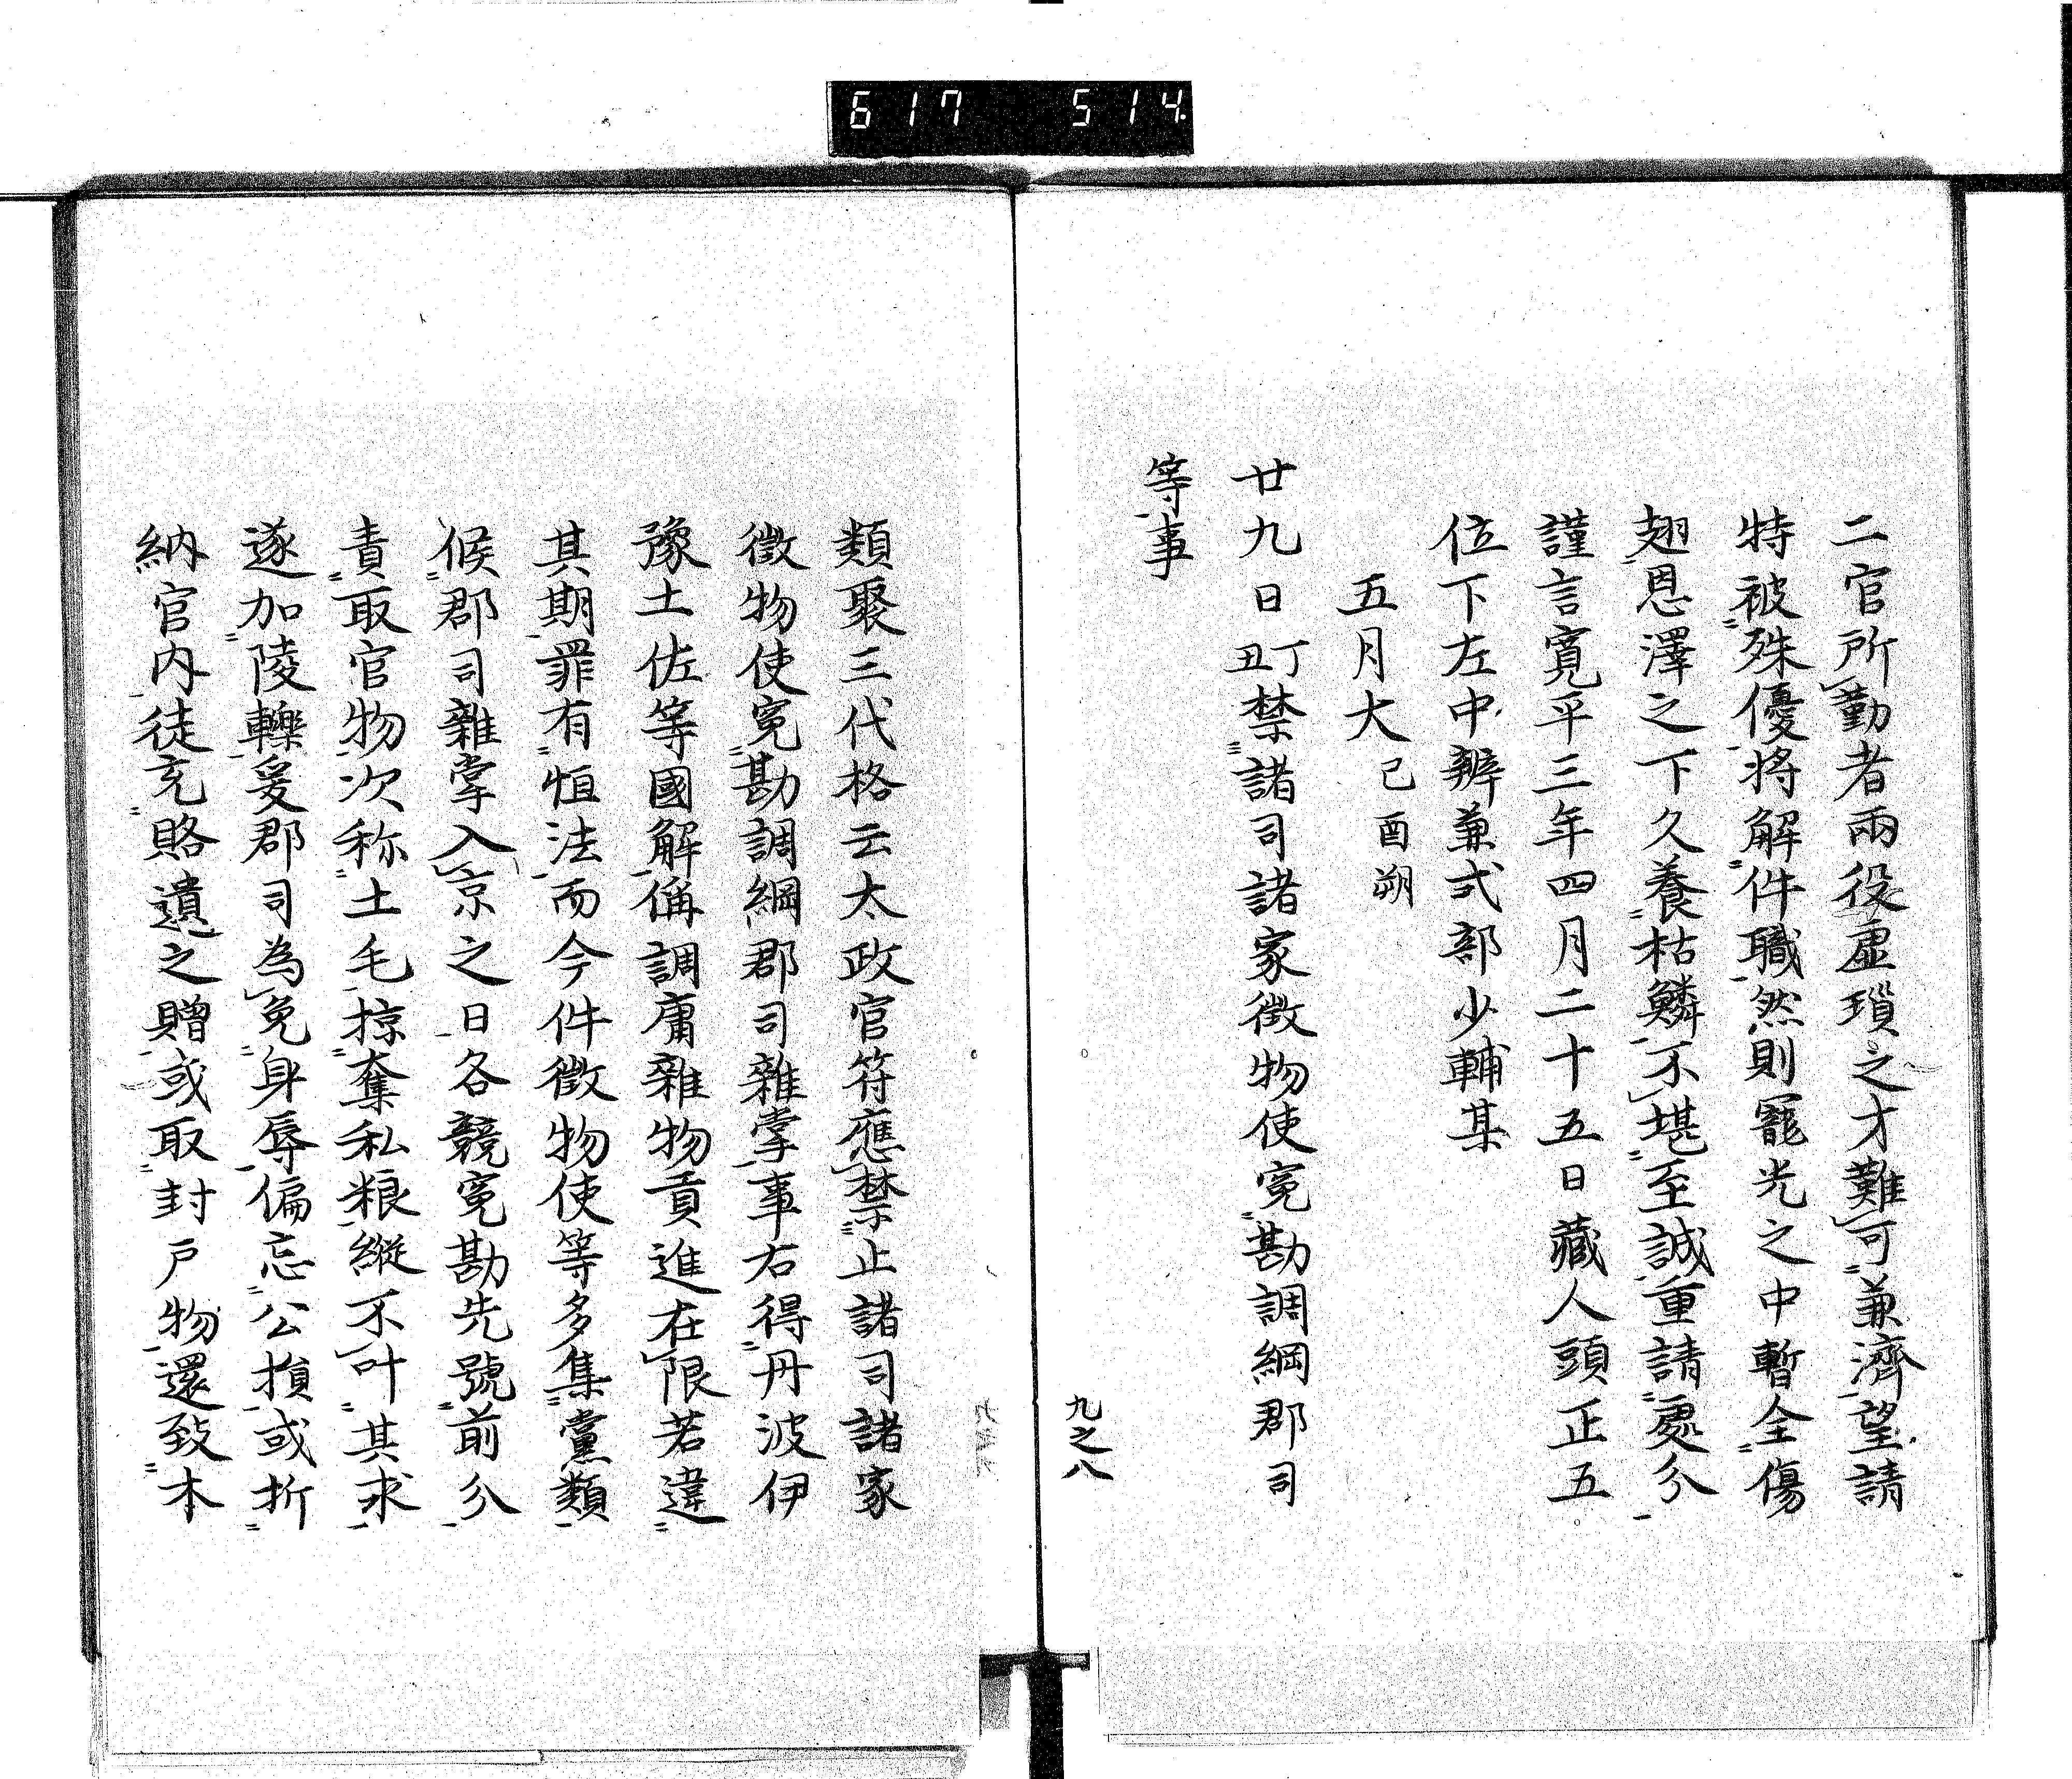 617 514
二官所勤者兩役虛瑣之才難可兼濟望請
特被殊優將解件職然則寵光之中暫全傷
翅恩澤之下久養枯鱗不堪至誠重請處分
謹言寬平三年四月二十五日藏人頭正五
位下左中辨兼式部少輔某
五月大己酉朔
廿九日丁丑禁諸司諸家徴物使寃勘調綱郡司
等事
九之八
類聚三代格云太政官符應禁止諸司諸家
徴物使寃勘調綱郡司雜掌事右得丹波伊
豫土佐等國解偁調庸雜物貢進在限若違
其期罪有恒法而今件徴物使等多集黨類
候郡司雜掌入京之日各競寃勘先號前分
責取官物次称土毛掠奪私粮縱不叶其求
遂加陵轢爰郡司為免身辱偏忘公損或折
納官内徒充賂遺之贈或取封戸物還致本